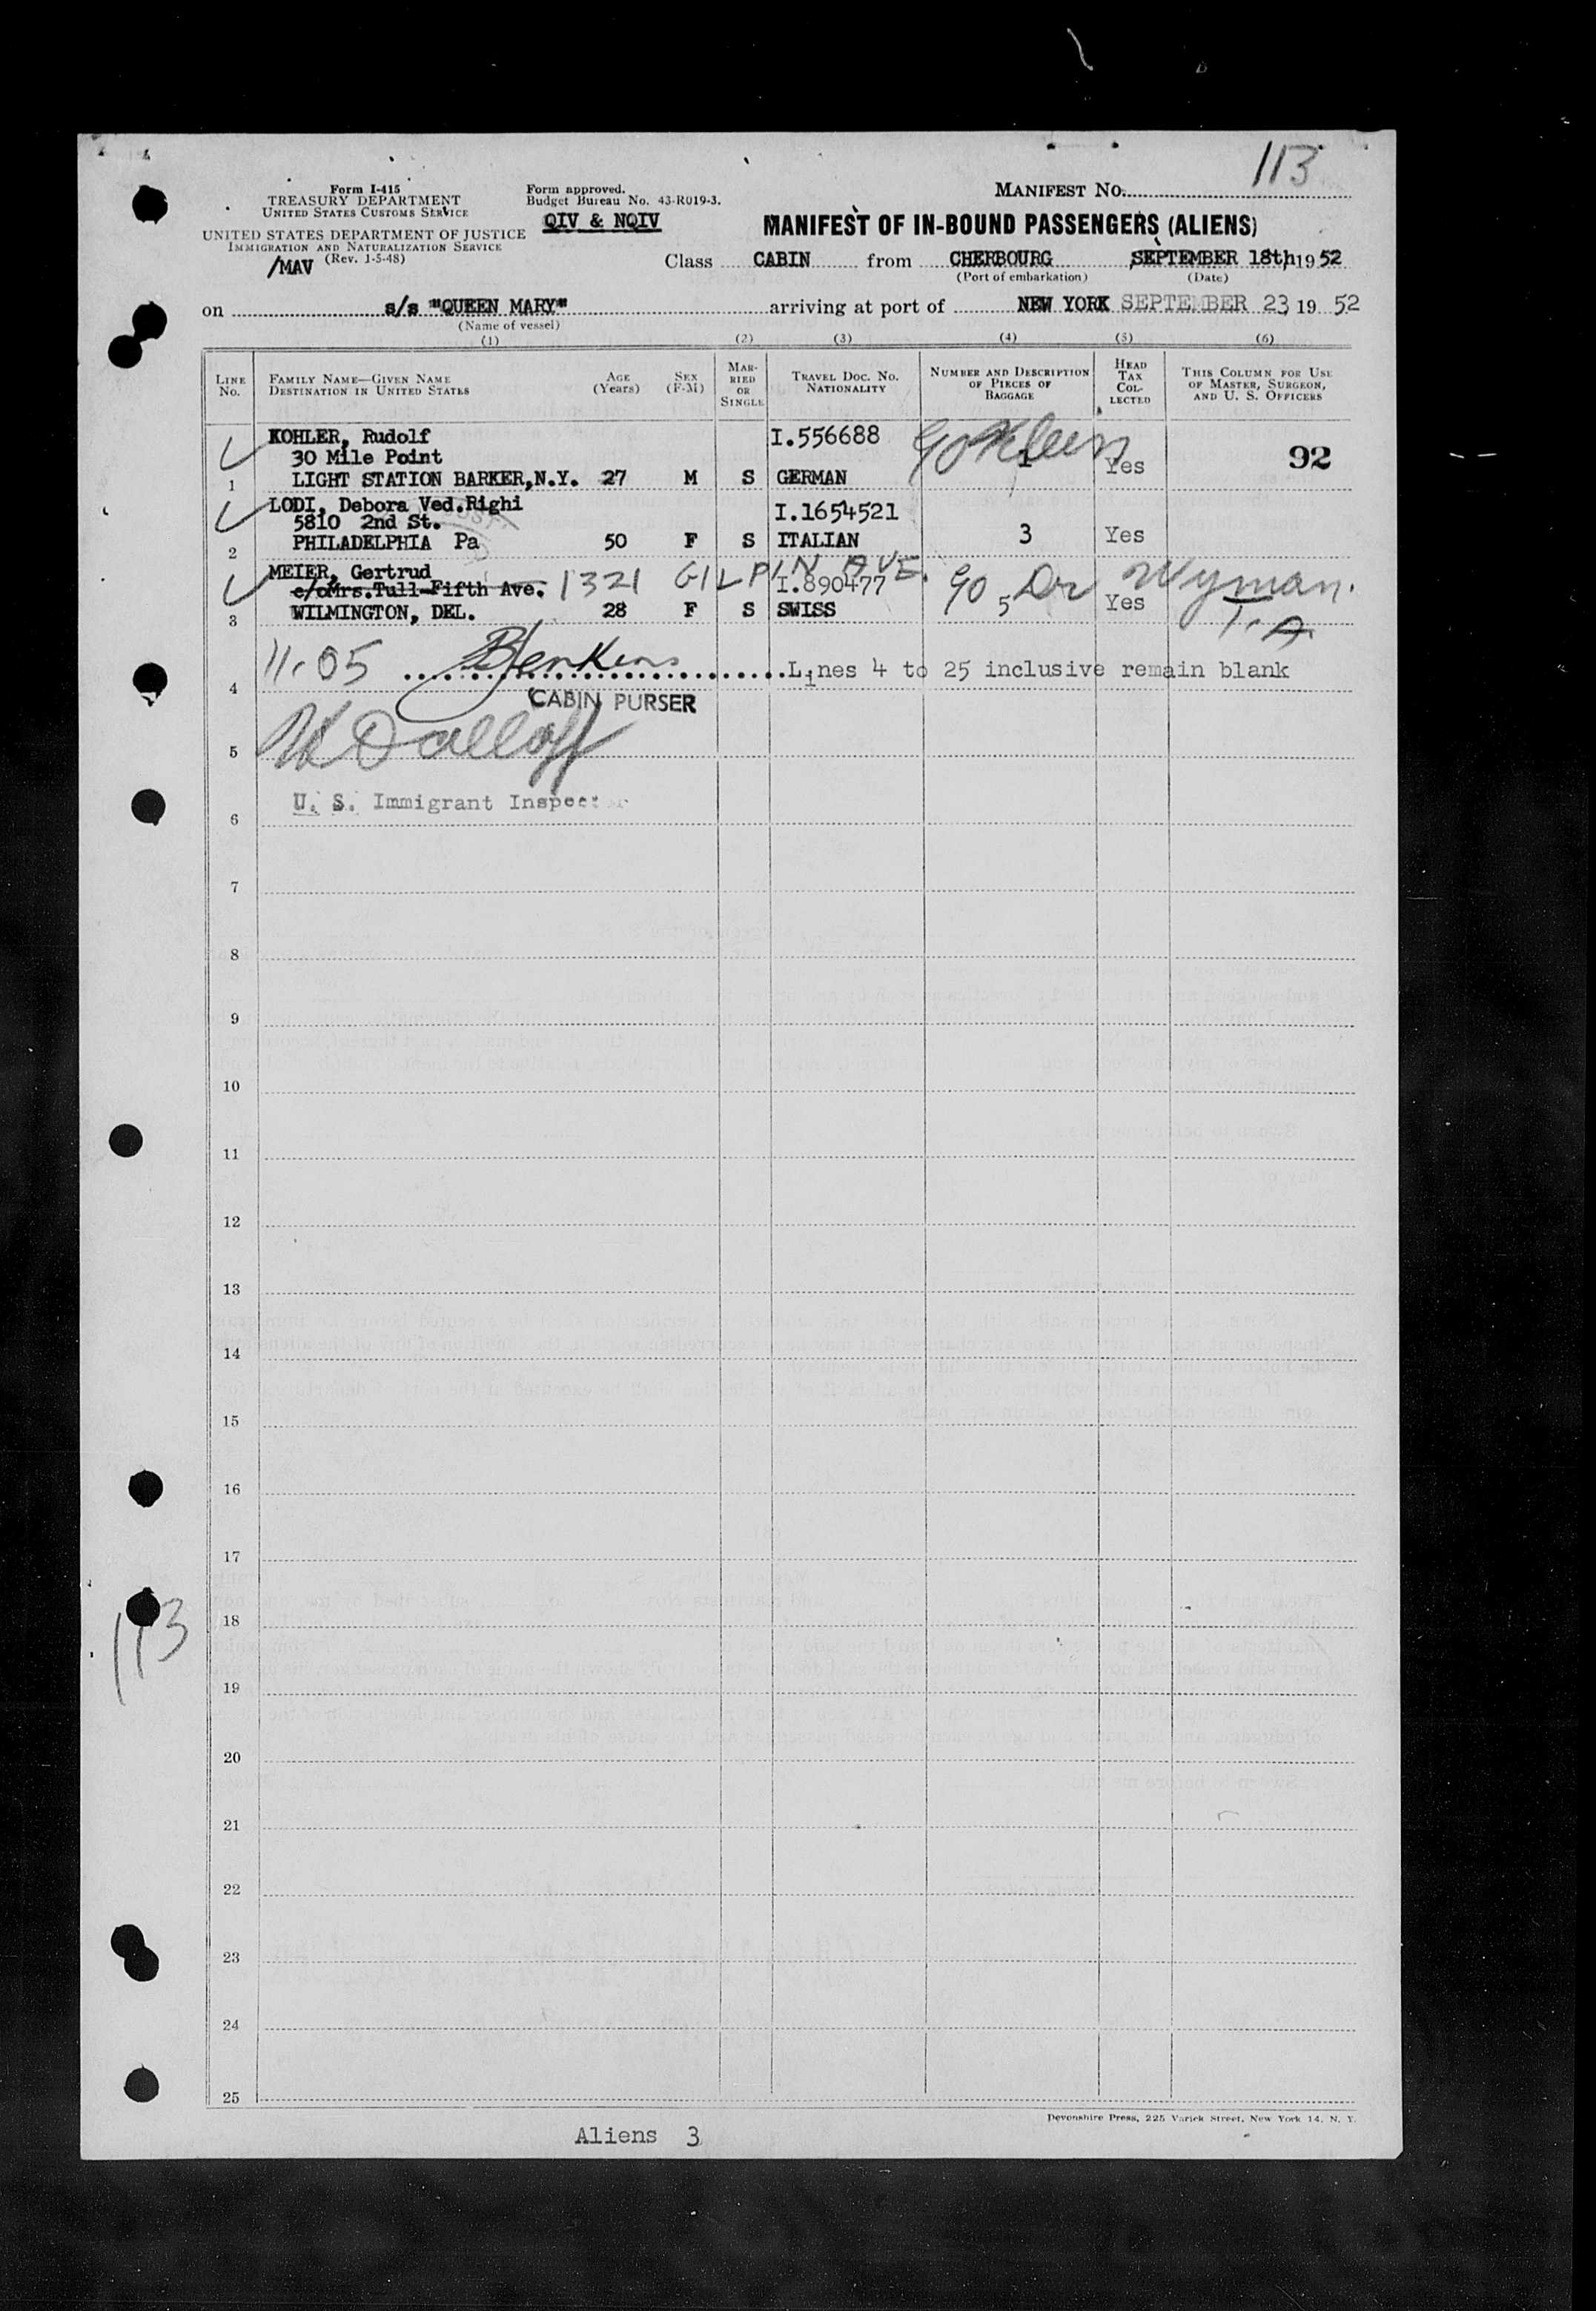 113
Form I-415
TREASURY DEPARTMENT
UNITED STATES CUSTOMS SERVICE
UNITED STATES DEPARTMENT OF JUSTICE
IMMIGRATION AND NATURALIZATION SERVICE
(Rev. 1-5-48)
/MAV
Form approved.
Budget Bureau No. 43-R019-3.
QIV & NQIV
MANIFEST NO.
MANIFEST OF IN-BOUND PASSENGERS (ALIENS)
Class CABIN from CHERBOURG SEPTEMBER 18th 1952
(Port of embarkation) (Date)
on s/s "QUEEN MARY" arriving at port of NEW YORK SEPTEMBER 23 19 52
(Name of vessel)
(1) (2) (3) (4) (5) (6)
LINE No.
FAMILY NAME—GIVEN NAME
DESTINATION IN UNITED STATES
AGE (Years)
SEX (F-M)
MARRIED OR SINGLE
TRAVEL DOC. NO.
NATIONALITY
NUMBER AND DESCRIPTION OF PIECES OF BAGGAGE
HEAD TAX COLLECTED
THIS COLUMN FOR USE OF MASTER, SURGEON, AND U. S. OFFICERS
KOHLER, Rudolf I.556688
30 Mile Point 92
1 LIGHT STATION BARKER,N.Y. 27 M S GERMAN 1 Yes
LODI, Debora Ved.Righi I.1654521
5810 2nd St.
2 PHILADELPHIA Pa 50 F S ITALIAN 3 Yes
MEIER, Gertrud
c/oMrs.Tull-Fifth Ave. 1321 GILPIN AVE. I.890477 90 Dr Wyman.
3 WILMINGTON, DEL. 28 F S SWISS 5 Yes T.A.
11.05 Jenkins Lines 4 to 25 inclusive remain blank
4
CABIN PURSER
5
U. S. Immigrant Inspector
6
7
8
9
10
11
12
13
14
15
16
17
18
113
19
20
21
22
23
24
25
Devonshire Press, 225 Varick Street, New York 14, N. Y.
Aliens 3